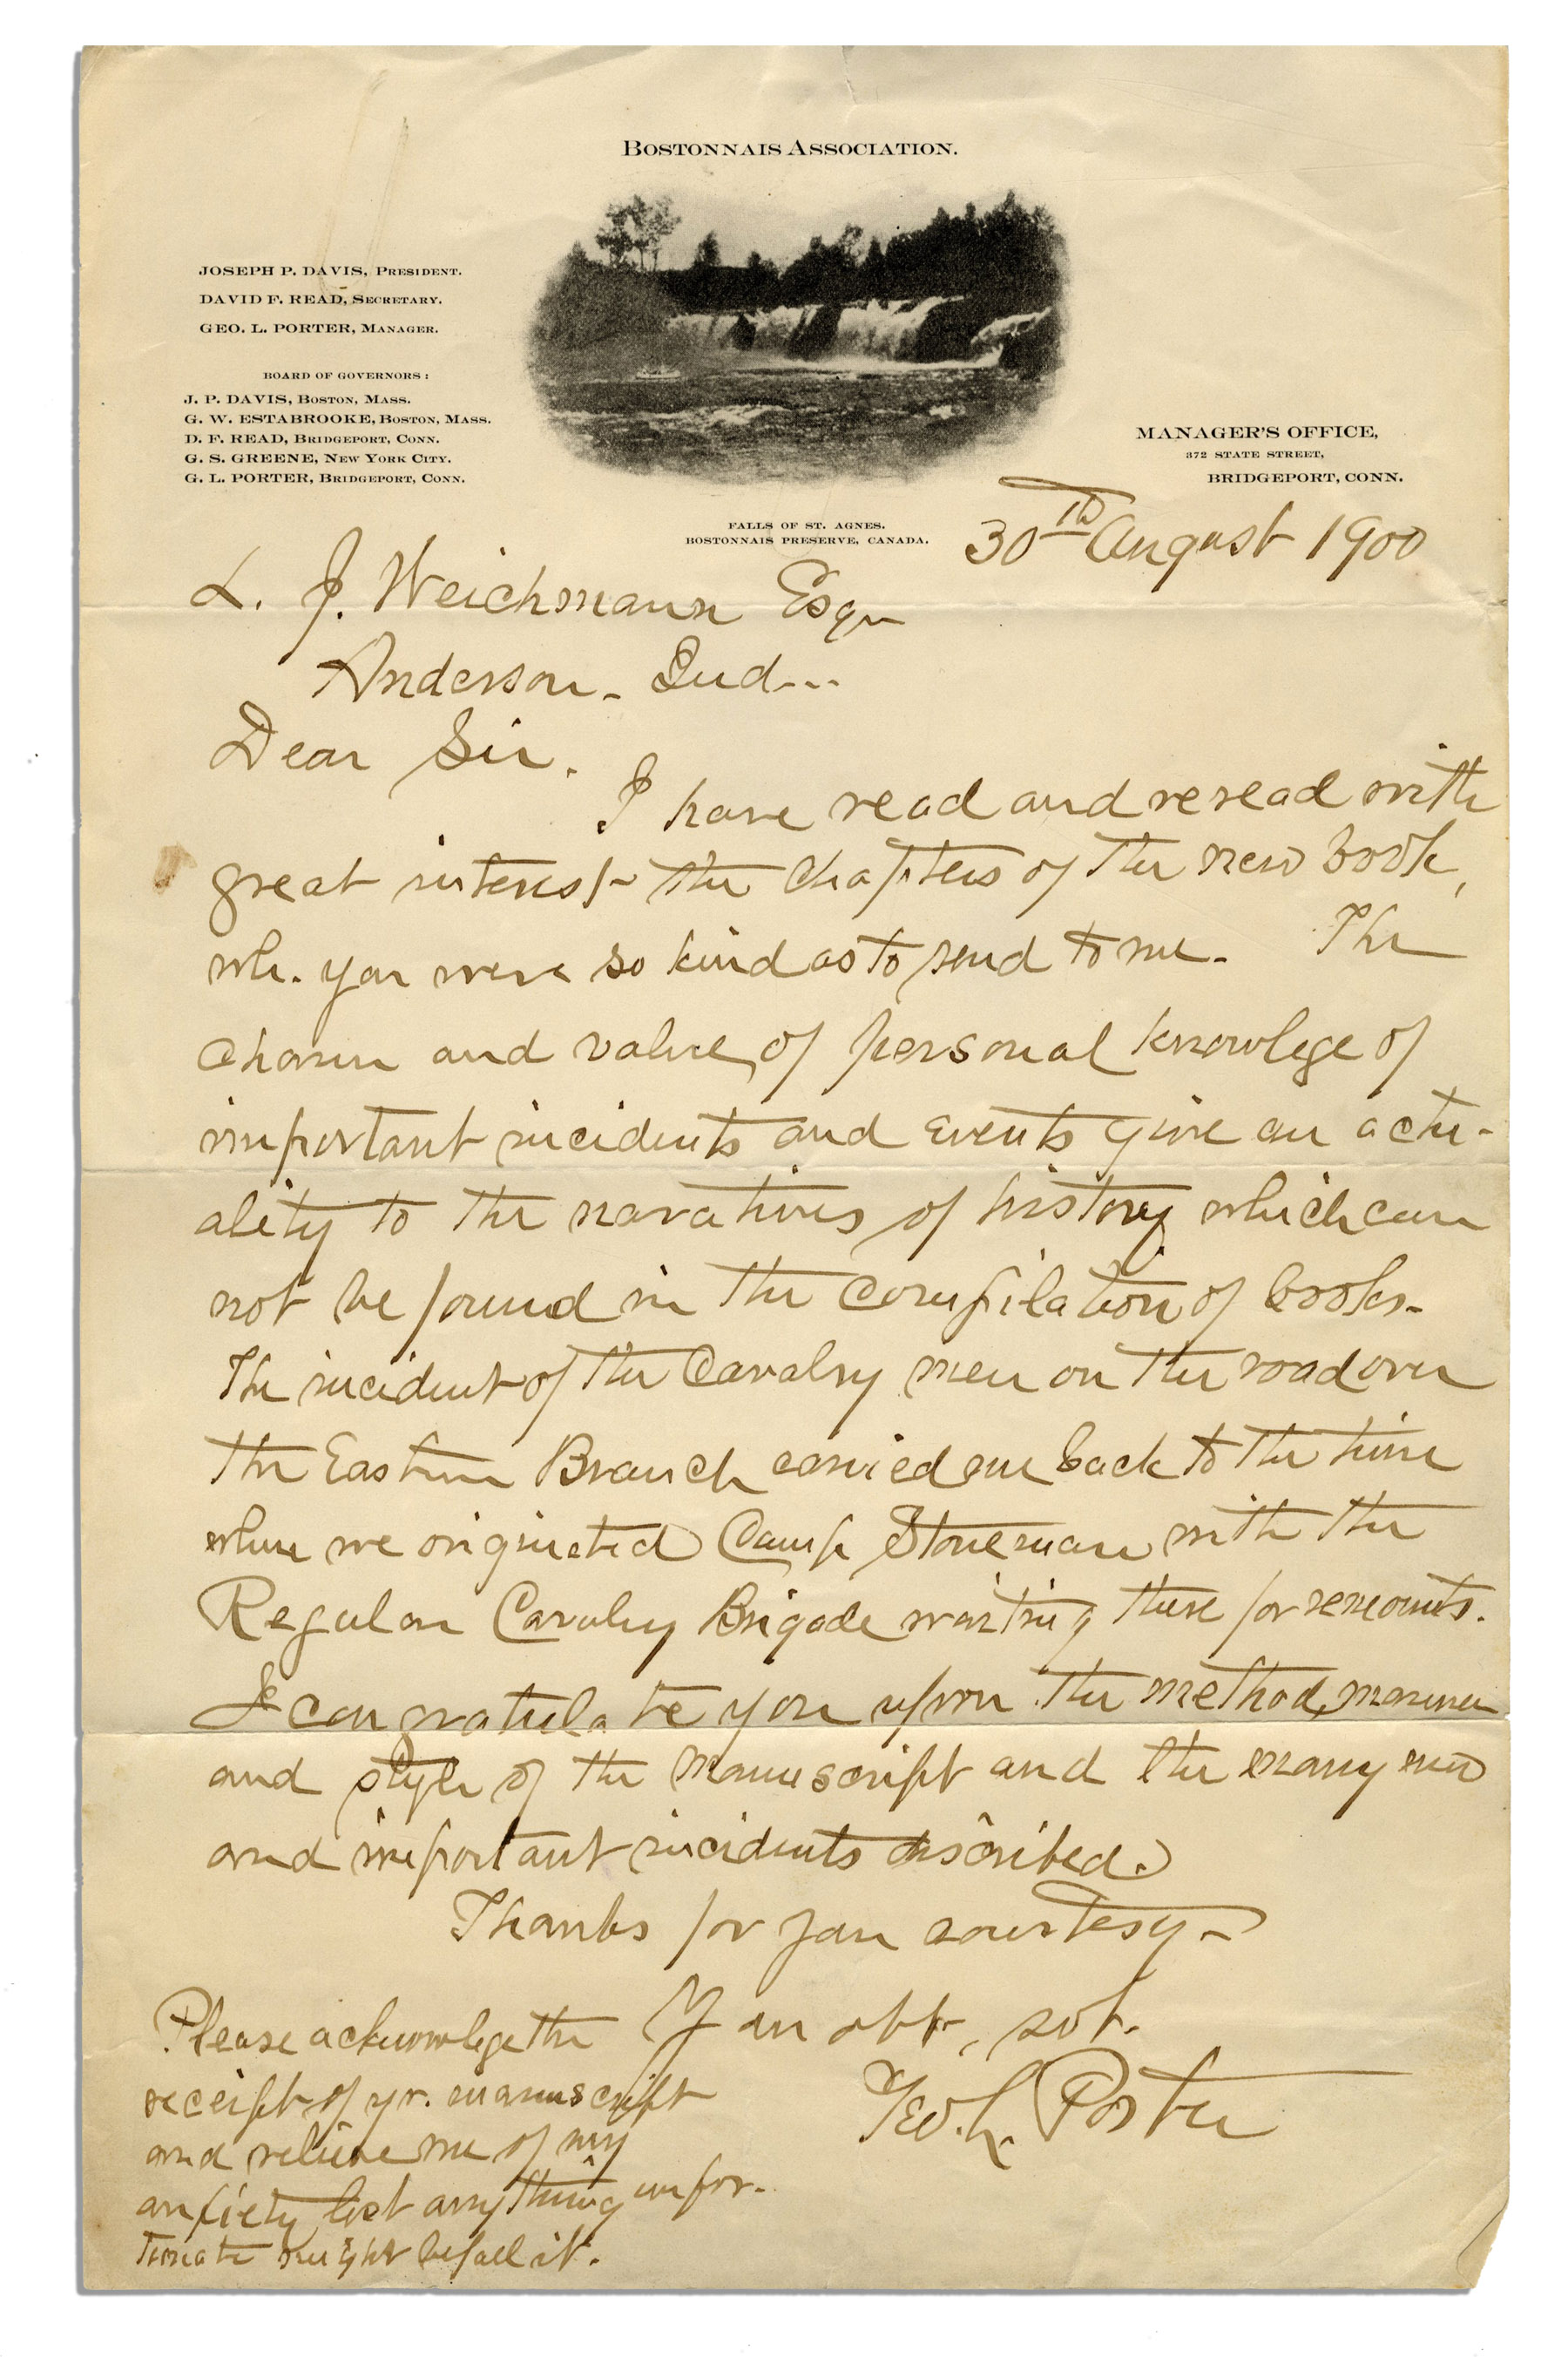 BOSTONNAIS ASSOCIATION.
JOSEPH P. DAVIS, PRESIDENT.
DAVID F. READ, SECRETARY.
GEO. L. PORTER, MANAGER.
BOARD OF GOVERNORS:
J. P. DAVIS, BOSTON, MASS.
G. W. ESTABROOKE, BOSTON, MASS.
D. F. READ, BRIDGEPORT, CONN.
G. S. GREENE, NEW YORK CITY.
G. L. PORTER, BRIDGEPORT, CONN.
MANAGER'S OFFICE,
372 STATE STREET,
BRIDGEPORT, CONN.
FALLS OF ST. AGNES.
BOSTONNAIS PRESERVE, CANADA.
30th August 1900
L. J. Weichmann Esqr
Anderson - Ind...
Dear Sir.
I have read and reread with
great interest the chapters of the new book,
wh. you were so kind as to send to me. The
charm and value, of personal knowlege of
important incidents and events give an actu-
ality to the naratives of history which can
not be found in the compilation of books.
The incident of the Cavalry men on the road over
the Eastern Branch carried me back to the time
when we originated Camp Stoneman with the
Regular Cavalry Brigade waiting there for remounts.
I congratulate you upon the method, manner
and style of the manuscript and the many new
and important incidents described.
Thanks for your courtesy -
Yur obt, svt.
Geo. L. Porter
Please acknowlege the
receipt of yr. manuscript
and relieve me of my
anxiety lest anything unfor-
tunate might befall it.